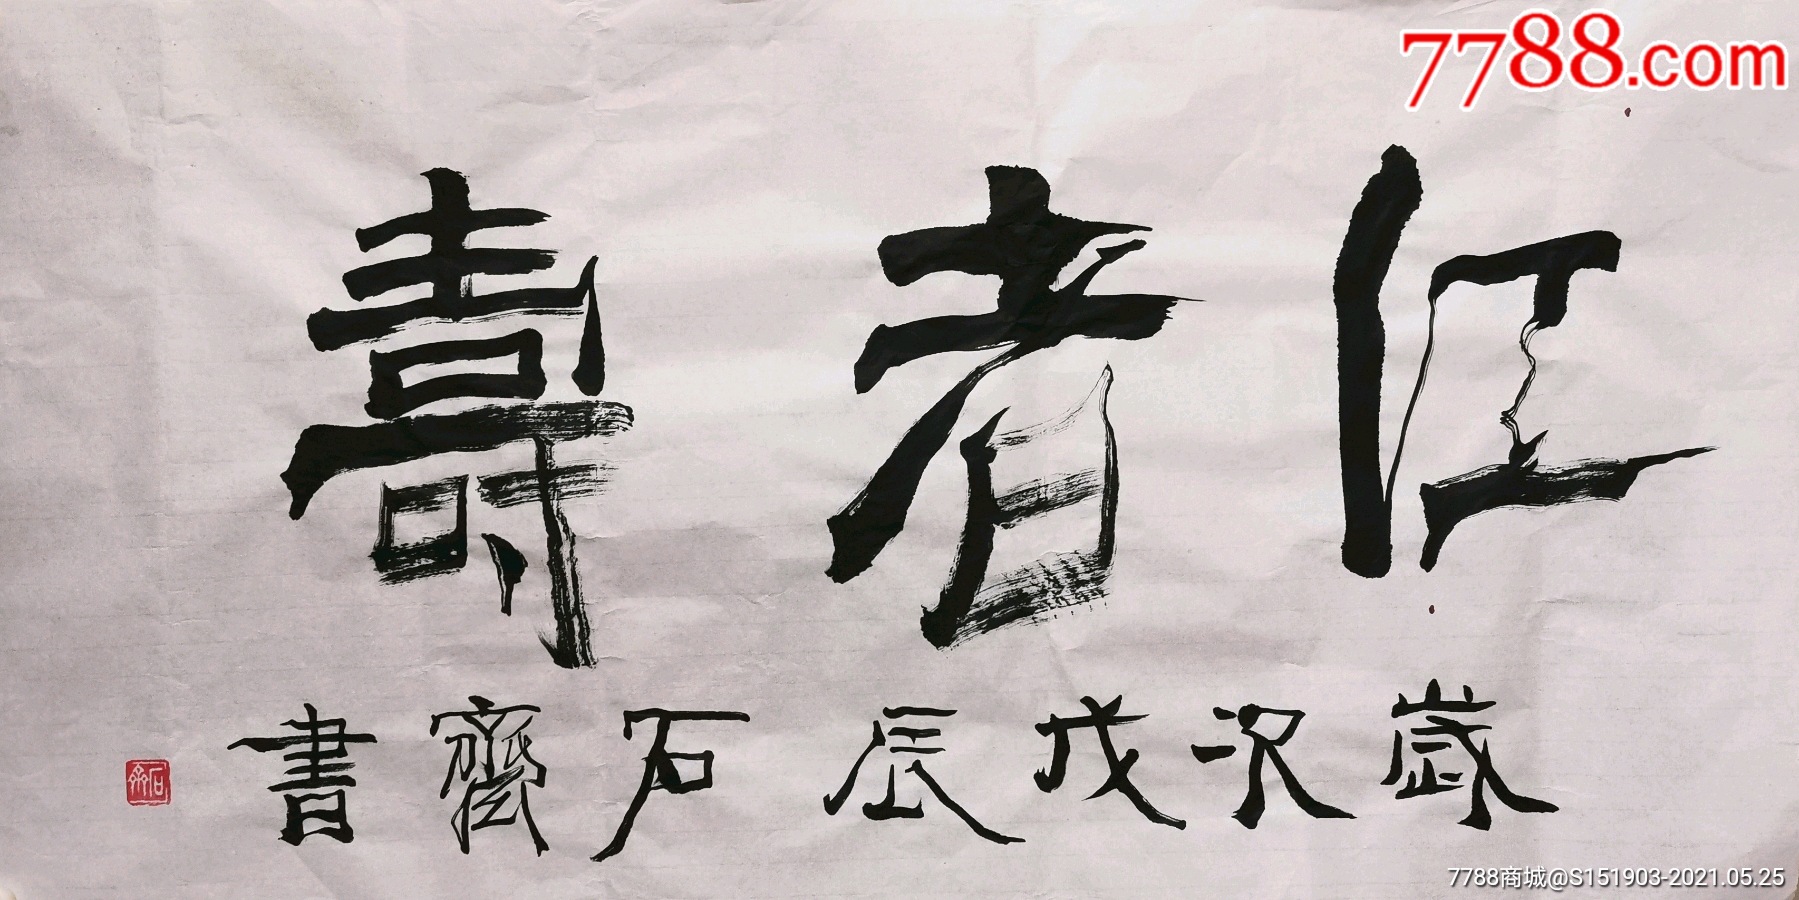 7788.com
仁者壽
歲次戊辰 石齋書
7788商城@S151903-2021.05.25